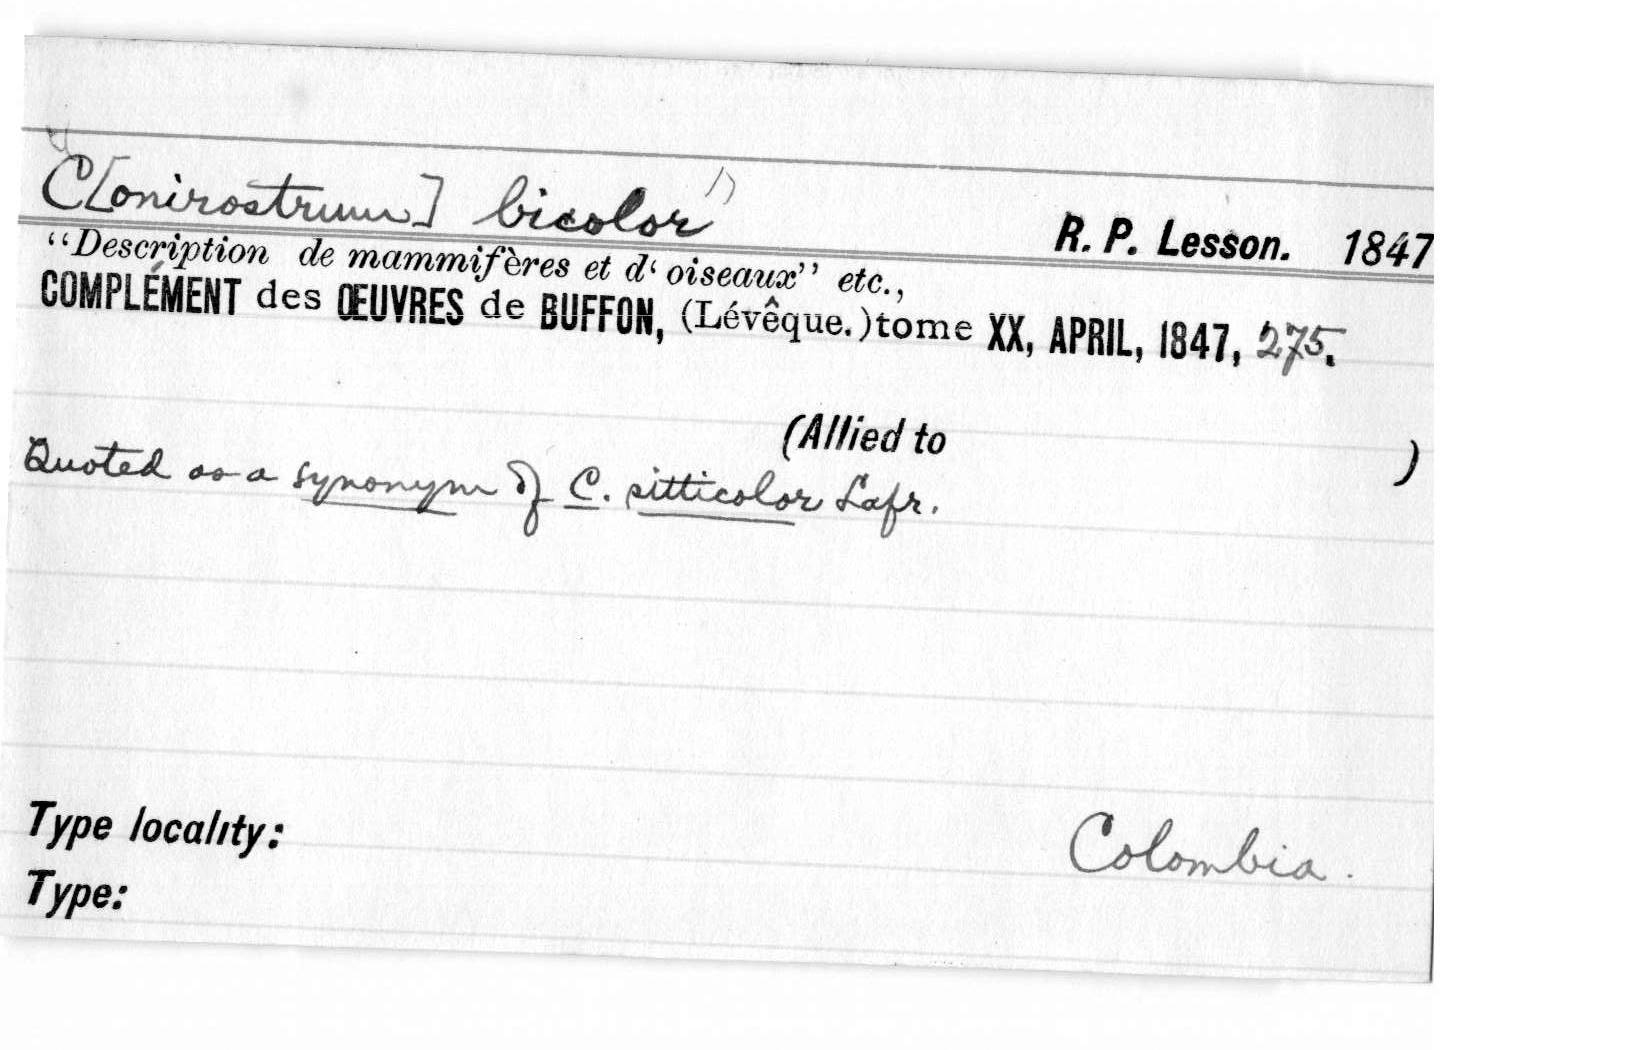 "C[onirostrum] bicolor"
R. P. Lesson. 1847
“Description de mammifères et d‘ oiseaux” etc.,
COMPLÉMENT des ŒUVRES de BUFFON, (Lévêque.) tome XX, APRIL, 1847, 275.
(Allied to )
Quoted as a synonym of C. sitticolor Lafr.
Type locality: Colombia.
Type: